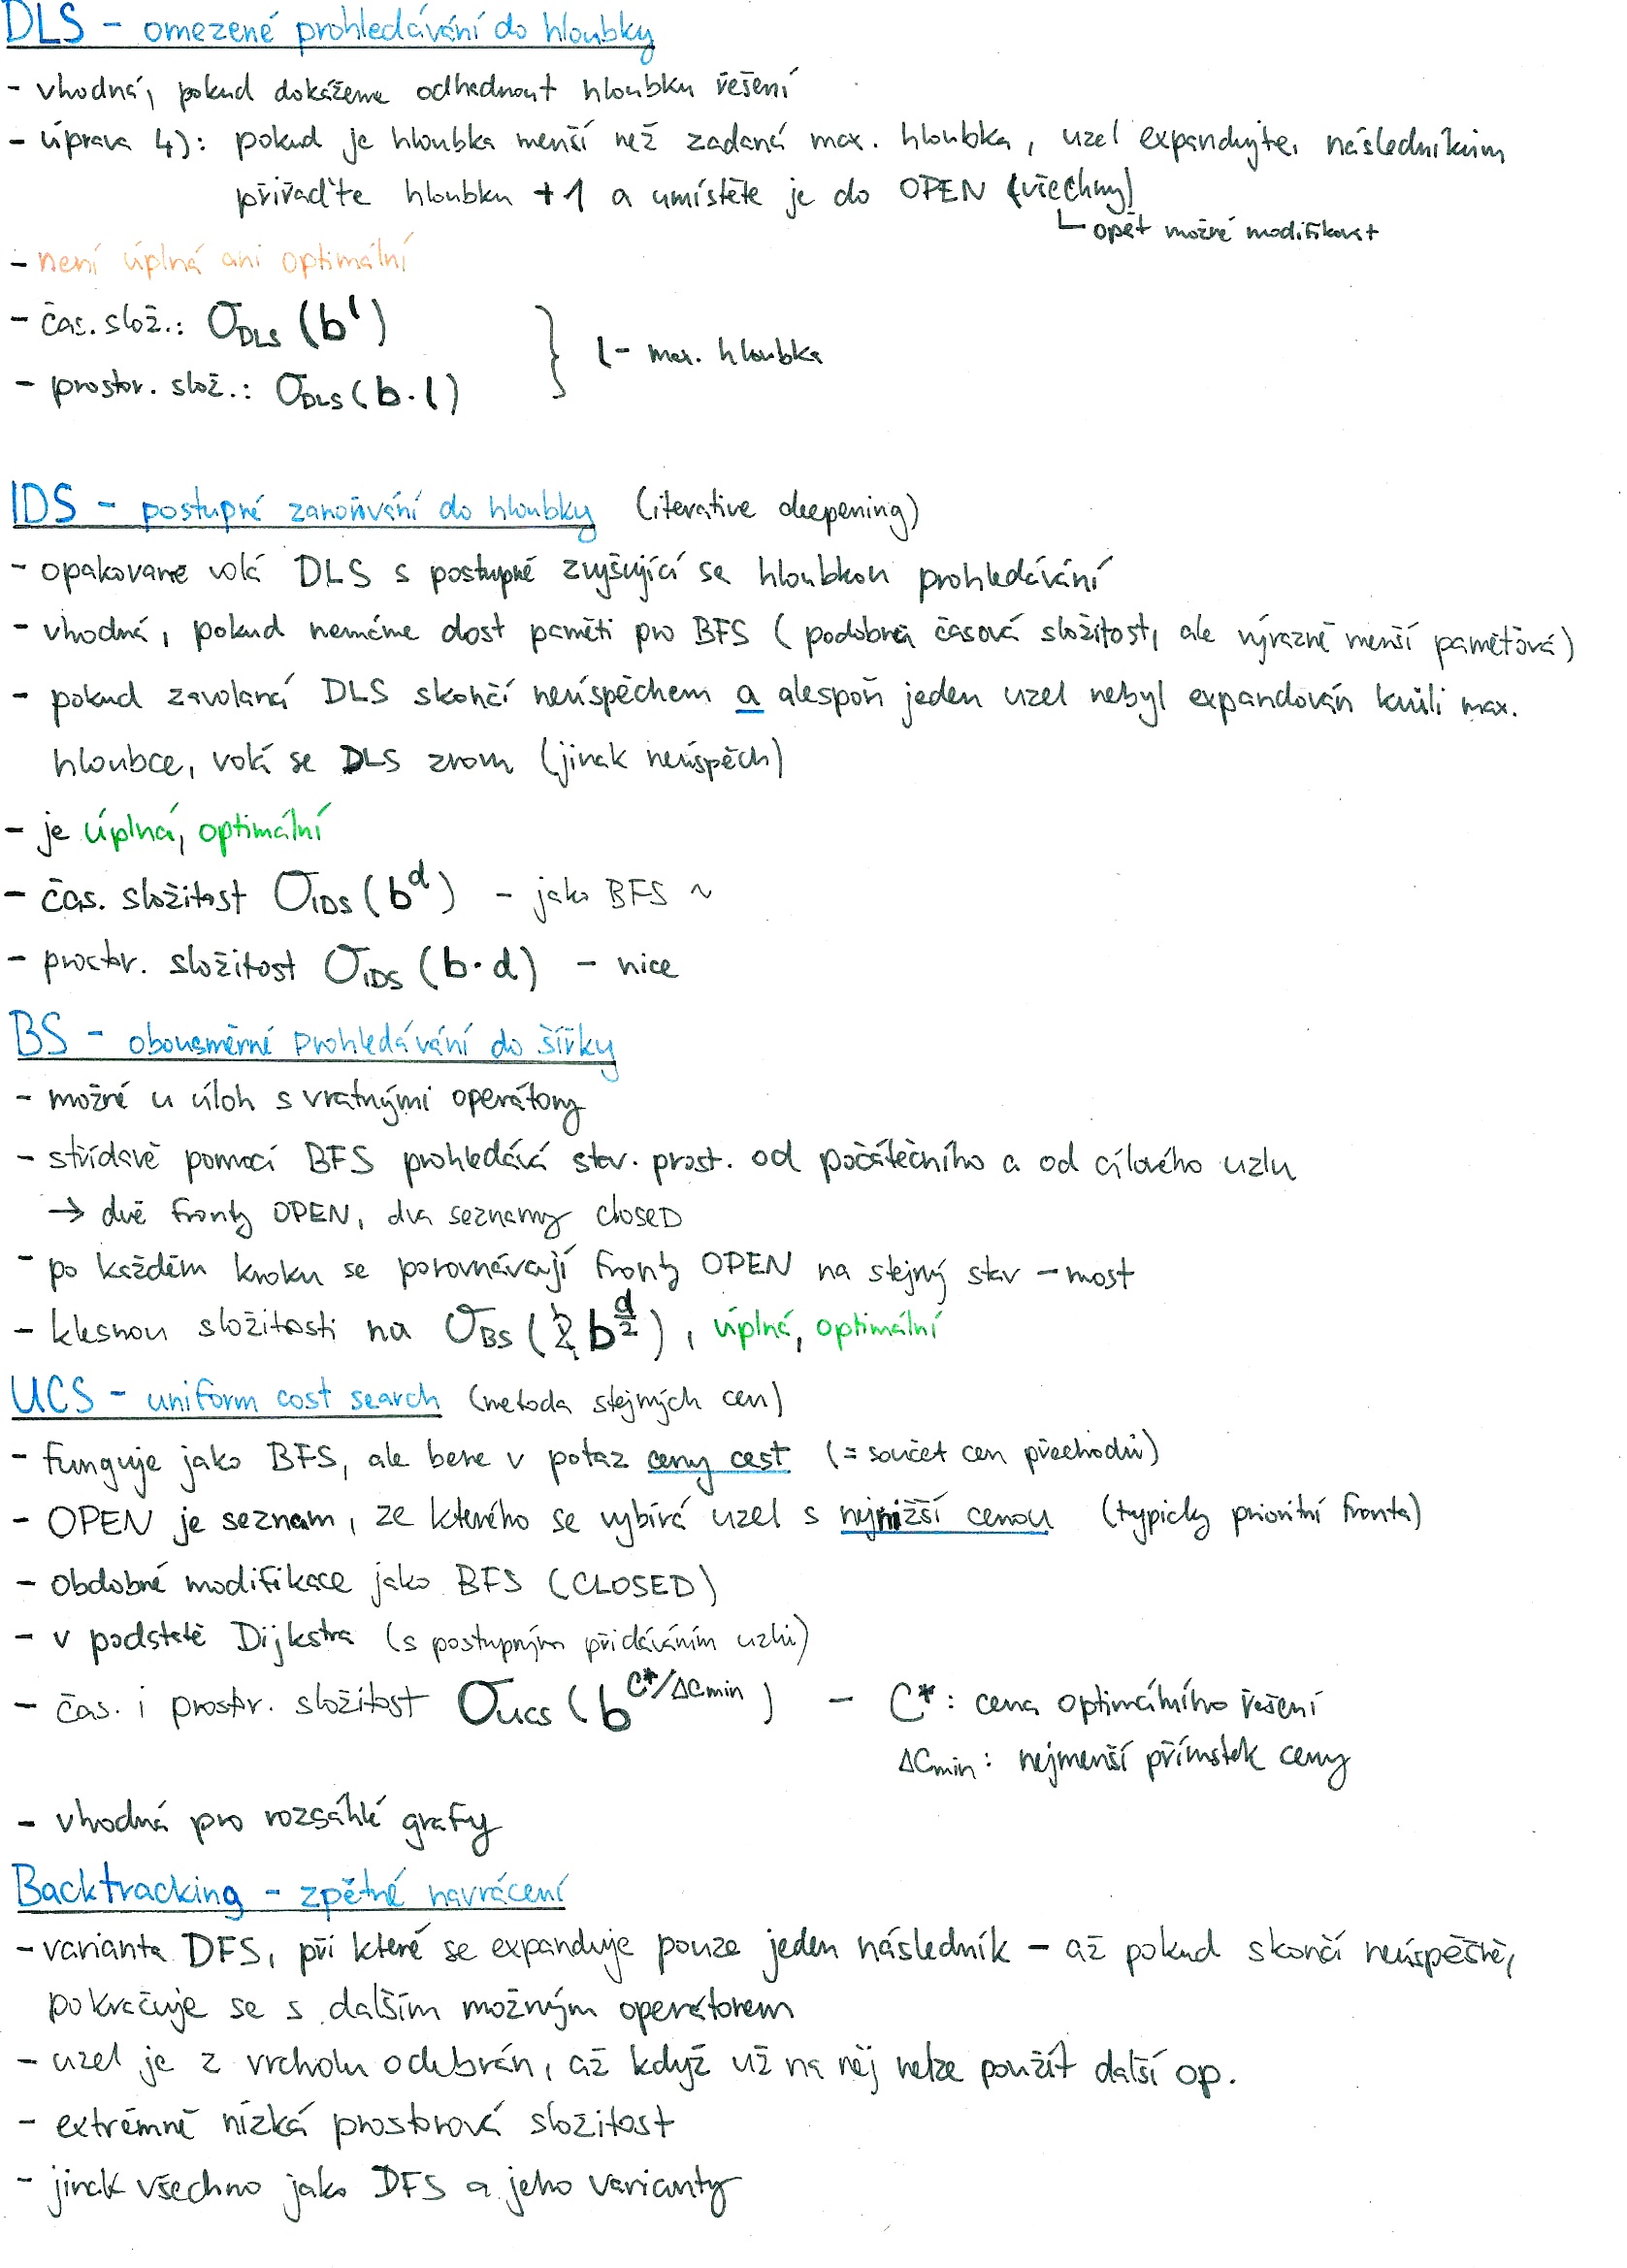 DLS - omezené prohledávání do hloubky
- vhodná, pokud dokážeme odhadnout hloubku řešení
- úprava 4): pokud je hloubka menší než zadaná max. hloubka, uzel expandujte, následníkům
přiřaďte hloubku +1 a umístěte je do OPEN (všechny)
opět možné modifikovat
- není úplná ani optimální
- čas. slož.: O_DLS (b^l)
- prostor. slož.: O_DLS (b·l)
} l - max. hloubka
IDS - postupné zanořování do hloubky (iterative deepening)
- opakovaně volá DLS s postupně zvyšující se hloubkou prohledávání
- vhodná, pokud nemáme dost paměti pro BFS (podobná časová složitost, ale výrazně menší paměťová)
- pokud zavolaná DLS skončí neúspěchem a alespoň jeden uzel nebyl expandován kvůli max.
hloubce, volá se DLS znovu (jinak neúspěch)
- je úplná, optimální
- čas. složitost O_IDS (b^d) - jako BFS ~
- prostor. složitost O_IDS (b·d) - nice
BS - obousměrné prohledávání do šířky
- možné u úloh s vratnými operátory
- střídavě pomocí BFS prohledává stav. prost. od počátečního a od cílového uzlu
→ dvě fronty OPEN, dva seznamy CLOSED
- po každém kroku se porovnávají fronty OPEN na stejný stav - most
- klesnou složitosti na O_BS (b^(d/2)), úplná, optimální
UCS - uniform cost search (metoda stejných cen)
- funguje jako BFS, ale bere v potaz ceny cest (= součet cen přechodů)
- OPEN je seznam, ze kterého se vybírá uzel s nejnižší cenou (typicky prioritní fronta)
- obdobné modifikace jako BFS (CLOSED)
- v podstatě Dijkstra (s postupným přidáváním uzlů)
- čas. i prostor. složitost O_UCS (b^(C*/ΔCmin)) - C*: cena optimálního řešení
ΔCmin: nejmenší přírůstek ceny
- vhodná pro rozsáhlé grafy
Backtracking - zpětné navrácení
- varianta DFS, při které se expanduje pouze jeden následník - až pokud skončí neúspěšně,
pokračuje se s dalším možným operátorem
- uzel je z vrcholu odebrán, až když už na něj nelze použít další op.
- extrémně nízká prostorová složitost
- jinak všechno jako DFS a jeho varianty